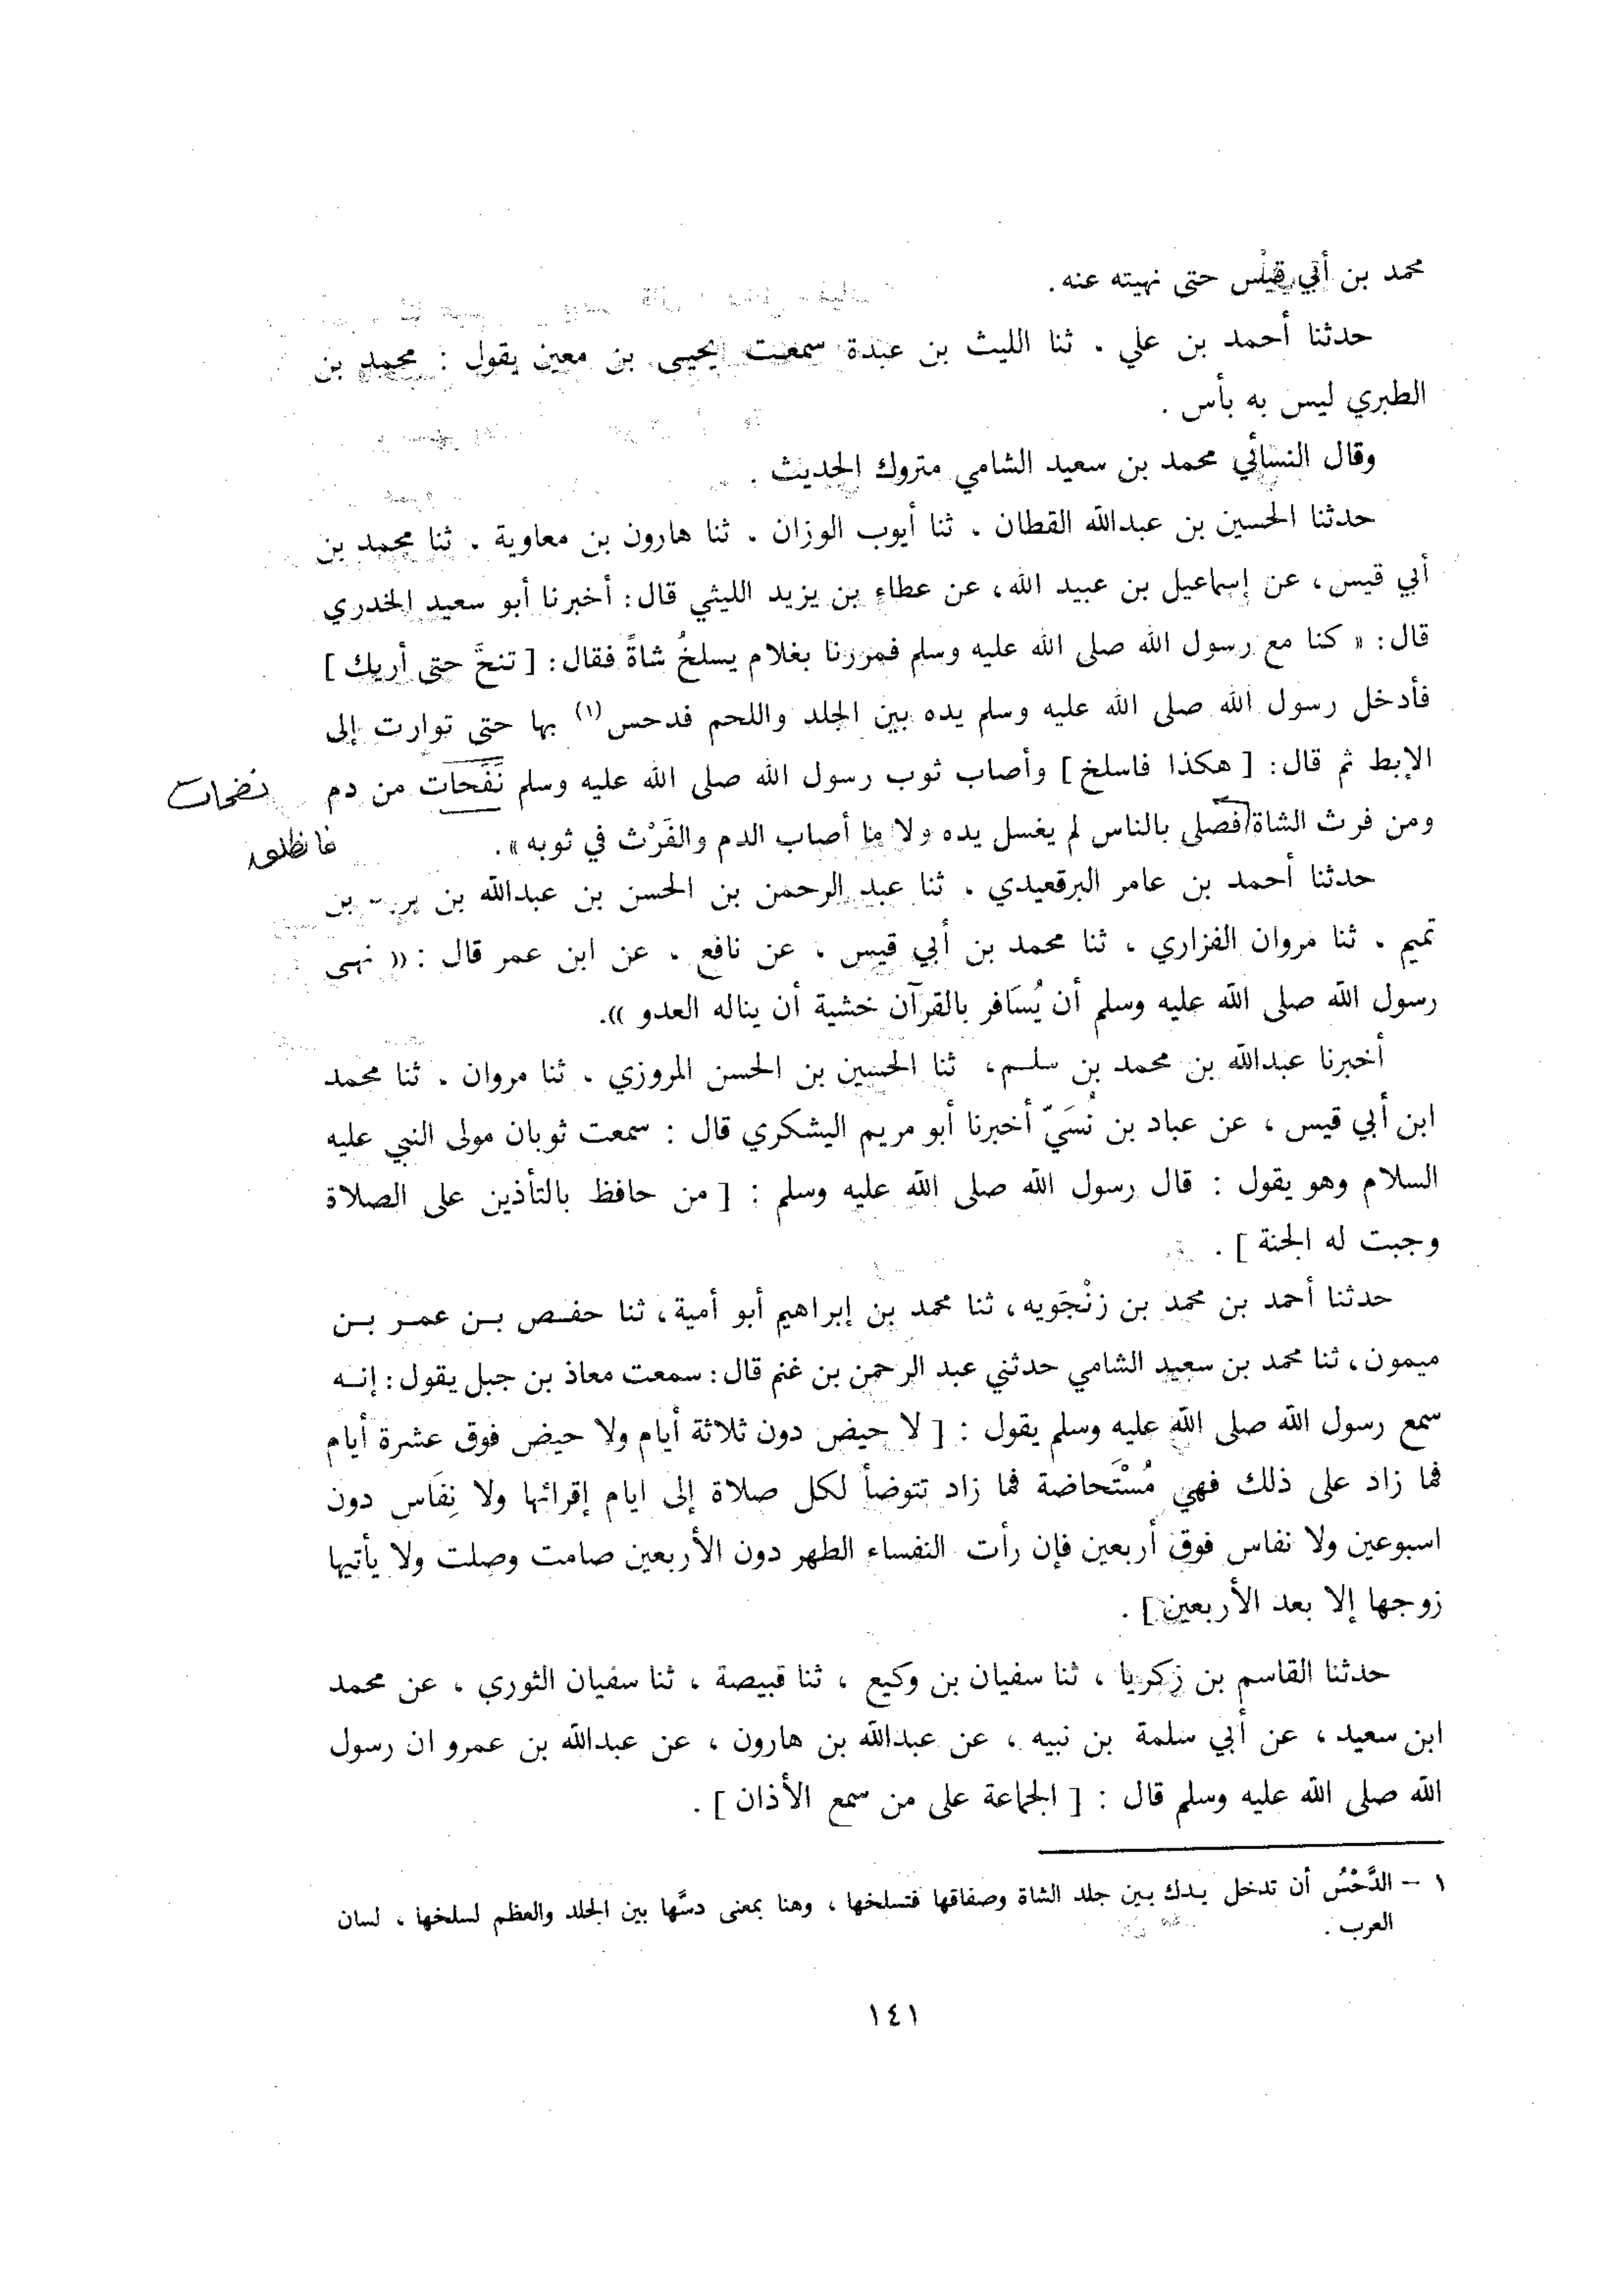 محمد بن أبي قيس حتى نهيته عنه.
حدثنا أحمد بن علي . ثنا الليث بن عبدة سمعت يحيى بن معين يقول : محمد بن
الطبري ليس به بأس .
وقال النسائي محمد بن سعيد الشامي متروك الحديث .
حدثنا الحسين بن عبدالله القطان . ثنا أيوب الوزان . ثنا هارون بن معاوية . ثنا محمد بن
أبي قيس، عن إسماعيل بن عبيد الله، عن عطاء بن يزيد الليثي قال: أخبرنا أبو سعيد الخدري
قال: « كنا مع رسول الله صلى الله عليه وسلم فمررنا بغلام يسلخُ شاةً فقال: [ تنحَّ حتى أريك ]
فأدخل رسول الله صلى الله عليه وسلم يده بين الجلد واللحم فدحس(١) بها حتى توارت إلى
الإبط ثم قال: [ هكذا فاسلخ ] وأصاب ثوب رسول الله صلى الله عليه وسلم نَفَحات من دم
نضحات
ومن فرث الشاة فصلى بالناس لم يغسل يده ولا ما أصاب الدم والفَرْث في ثوبه ».
فانطلق
حدثنا أحمد بن عامر البرقعيدي . ثنا عبد الرحمن بن الحسن بن عبدالله بن بن
تميم . ثنا مروان الفزاري ، ثنا محمد بن أبي قيس ، عن نافع . عن ابن عمر قال : « نهى
رسول الله صلى الله عليه وسلم أن يُسَافر بالقرآن خشية أن يناله العدو ».
أخبرنا عبدالله بن محمد بن سلم، ثنا الحسين بن الحسن المروزي . ثنا مروان . ثنا محمد
ابن أبي قيس ، عن عباد بن نُسَيّ أخبرنا أبو مريم اليشكري قال : سمعت ثوبان مولى النبي عليه
السلام وهو يقول : قال رسول الله صلى الله عليه وسلم : [ من حافظ بالتأذين على الصلاة
وجبت له الجنة ] .
حدثنا أحمد بن محمد بن زنْجَويه، ثنا محمد بن إبراهيم أبو أمية، ثنا حفص بن عمر بن
ميمون، ثنا محمد بن سعيد الشامي حدثني عبد الرحمن بن غنم قال: سمعت معاذ بن جبل يقول: إنه
سمع رسول الله صلى الله عليه وسلم يقول : [ لا حيض دون ثلاثة أيام ولا حيض فوق عشرة أيام
فما زاد على ذلك فهي مُسْتَحاضة فما زاد تتوضأ لكل صلاة إلى ايام إقرائها ولا نِفَاس دون
اسبوعين ولا نفاس فوق أربعين فإن رأت النفساء الطهر دون الأربعين صامت وصلت ولا يأتيها
زوجها إلا بعد الأربعين ] .
حدثنا القاسم بن زكريا ، ثنا سفيان بن وكيع ، ثنا قبيصة ، ثنا سفيان الثوري ، عن محمد
ابن سعيد ، عن أبي سلمة بن نبيه ، عن عبدالله بن هارون ، عن عبدالله بن عمرو ان رسول
الله صلى الله عليه وسلم قال : [ الجماعة على من سمع الأذان ] .
١ - الدَّحْسُ أن تدخل يدك بين جلد الشاة وصفاقها فتسلخها ، وهنا بمعنى دسَّها بين الجلد والعظم لسلخها ، لسان
العرب .
١٤١